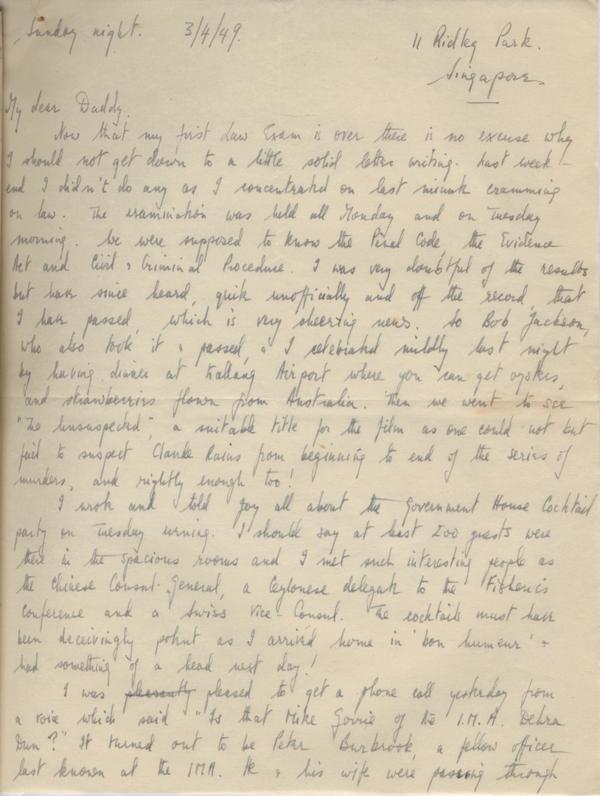 Sunday night. 3/4/49. 11 Ridley Park.
Singapore
My dear Daddy,
Now that my first Law Exam is over there is no excuse why
I should not get down to a little solid letter writing. Last week
end I didn't do any as I concentrated on last minute cramming
on law. The examination was held all Monday and on Tuesday
morning. We were supposed to know the Penal Code, the Evidence
Act and Civil & Criminal Procedure. I was very doubtful of the results
but have since heard, quite unofficially and off the record, that
I have passed, which is very cheering news. So Bob Jackson,
who also took it & passed, & I celebrated mildly last night
by having dinner at Kallang Airport where you can get oysters,
and strawberries flown from Australia. Then we went to see
"The Unsuspected", a suitable title for the film as one could not but
fail to suspect Claude Rains from beginning to end of the series of
murders, and rightly enough too!
I wrote and told Joy all about the Government House Cocktail
party on Tuesday evening. I should say at least 200 guests were
there in the spacious rooms and I met such interesting people as
the Chinese Consul-General, a Ceylonese delegate to the Fisheries
conference and a Swiss Vice-Consul. The cocktails must have
been deceivingly potent as I arrived home in 'bon humeur' &
had something of a head next day!
I was pleasantly pleased to get a phone call yesterday from
a voice which said "Is that Mike Gorrie of the I.M.A. Dehra
Dun?" It turned out to be Peter Burbrook, a fellow officer
last known at the IMA. He & his wife were passing through